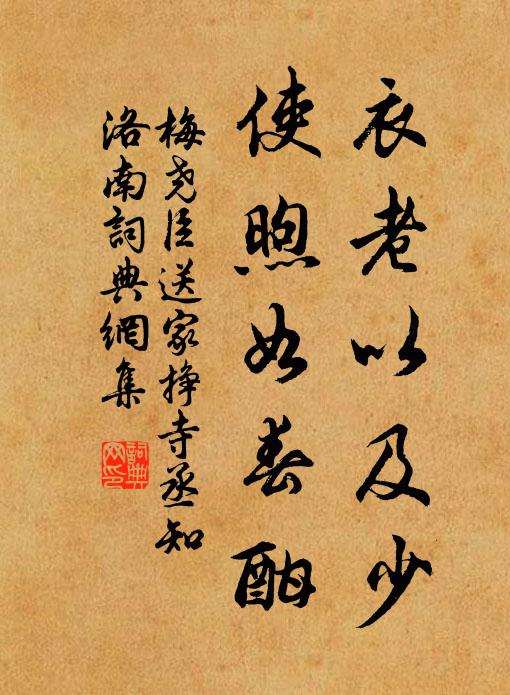 衣老以及少
使煦如春酣
梅尧臣送家挣寺丞知
洛南詞典網集
詞典
网印